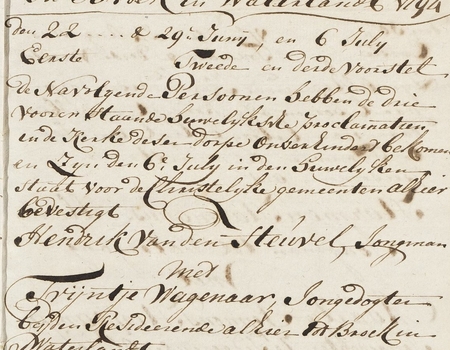 en Broek in Waterlandt 1794
den 22 ... & 29e Juny, en 6 July
Eerste Tweede en derde Voorstel
de Navolgende Persoonen hebben de drie
vooren staande huwelyksche proclamatien
in de Kerke deser dorpe onverhindert bekomen
en Zyn den 6e July in den huwelyken
staat voor de Christelyke gemeenten alhier
bevestigt
Hendrik van den Heuvel, Jongman
met
Trijntje Wagenaar, Jongedogter
beyden Resideerende alhier tot Broek in
Waterlandt